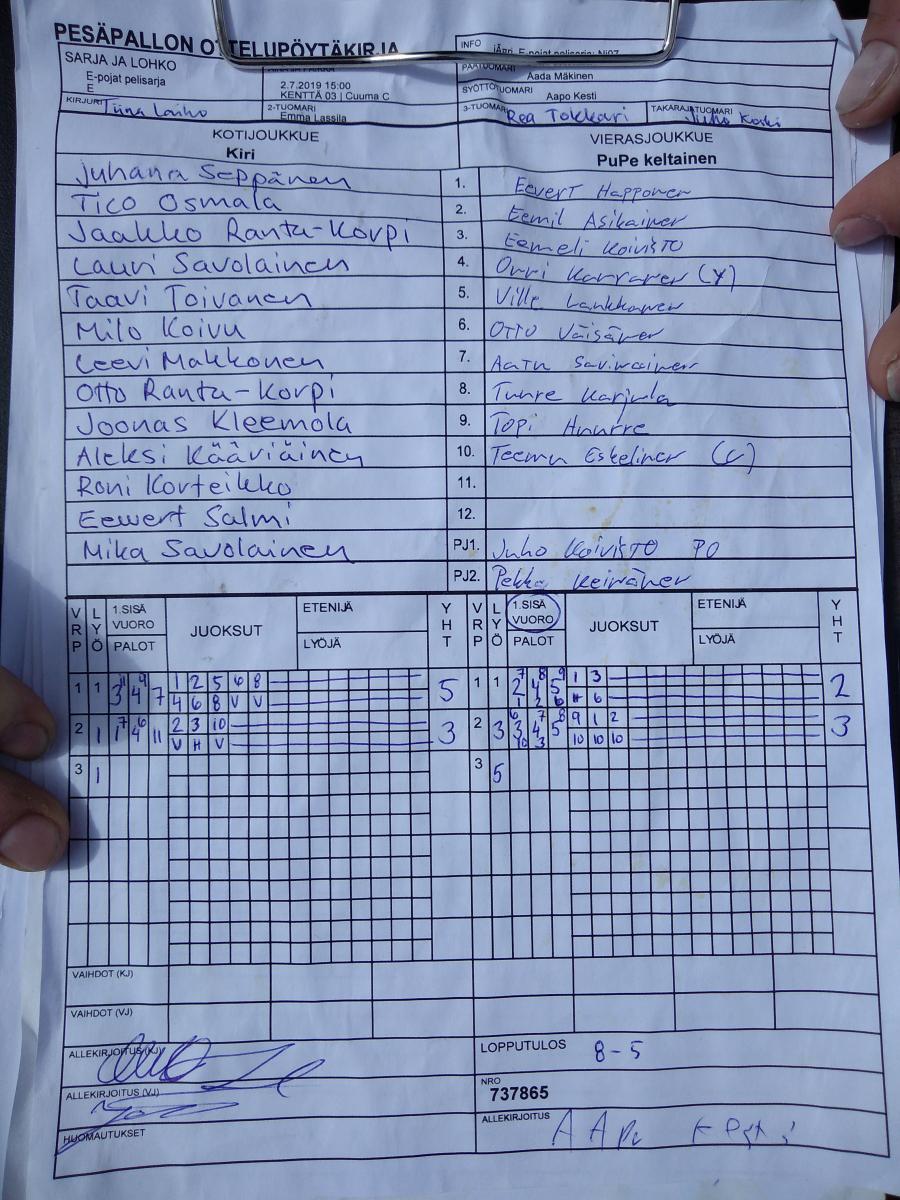 PESÄPALLON OTTELUPÖYTÄKIRJA
INFO
SARJA JA LOHKO
E-pojat pelisarja
E
2.7.2019 15:00
KENTTÄ 03 | Cuuma C
PÄÄTUOMARI
Aada Mäkinen
SYÖTTÖTUOMARI
Aapo Kesti
KIRJURI Tiina Laiho
2-TUOMARI
Emma Lassila
3-TUOMARI Rea Tokkari
TAKARAJATUOMARI
Juho Koski
KOTIJOUKKUE
Kiri
VIERASJOUKKUE
PuPe keltainen
Juhana Seppänen 1. Eevert Happonen
Tico Osmala 2. Eemil Asikainen
Jaakko Ranta-Korpi 3. Eemeli Koivisto
Lauri Savolainen 4. Onni Karranen (Y)
Taavi Toivanen 5. Ville Lankkonen
Milo Koivu 6. Otto Väisänen
Leevi Makkonen 7. Aatu Savinainen
Otto Ranta-Korpi 8. Tuure Karjula
Joonas Kleemola 9. Topi Huurre
Aleksi Kääriäinen 10. Teemu Eskelinen (L)
Roni Korteikko 11.
Eewert Salmi 12.
Mika Savolainen PJ1. Juho Koivisto PO
PJ2. Pekka Keinänen
VRP LYÖ 1.SISÄ VUORO PALOT JUOKSUT ETENIJÄ LYÖJÄ YHT VRP LYÖ 1.SISÄ VUORO PALOT JUOKSUT ETENIJÄ LYÖJÄ YHT
1 1 3 11 4 9 7 1 2 5 6 8 5 1 1 2 7 4 8 5 9 1 3 2
4 6 8 V V 1 2 6 H 6
2 1 1 7 4 6 11 2 3 10 3 2 3 3 6 4 7 5 8 9 1 2 3
V H V 10 3 10 10 10
3 1 3 5
VAIHDOT (KJ)
VAIHDOT (VJ)
ALLEKIRJOITUS (KJ)
LOPPUTULOS 8-5
ALLEKIRJOITUS (VJ)
NRO
737865
HUOMAUTUKSET
ALLEKIRJOITUS AApo Kesti